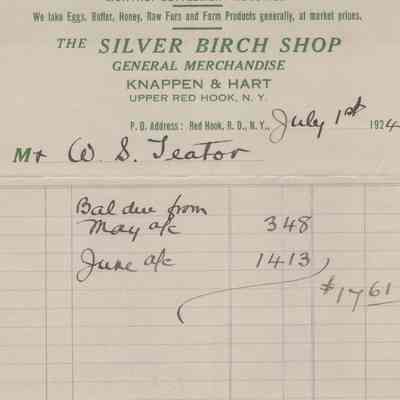 We take Eggs, Butter, Honey, Raw Furs and Farm Products generally, at market prices.
THE SILVER BIRCH SHOP
GENERAL MERCHANDISE
KNAPPEN & HART
UPPER RED HOOK, N. Y.
P. O. Address: Red Hook, R. D., N. Y., July 1st 1924
Mr W. S. Teator
Bal due from
May a/c 3 48
June a/c 14 13
$17 61